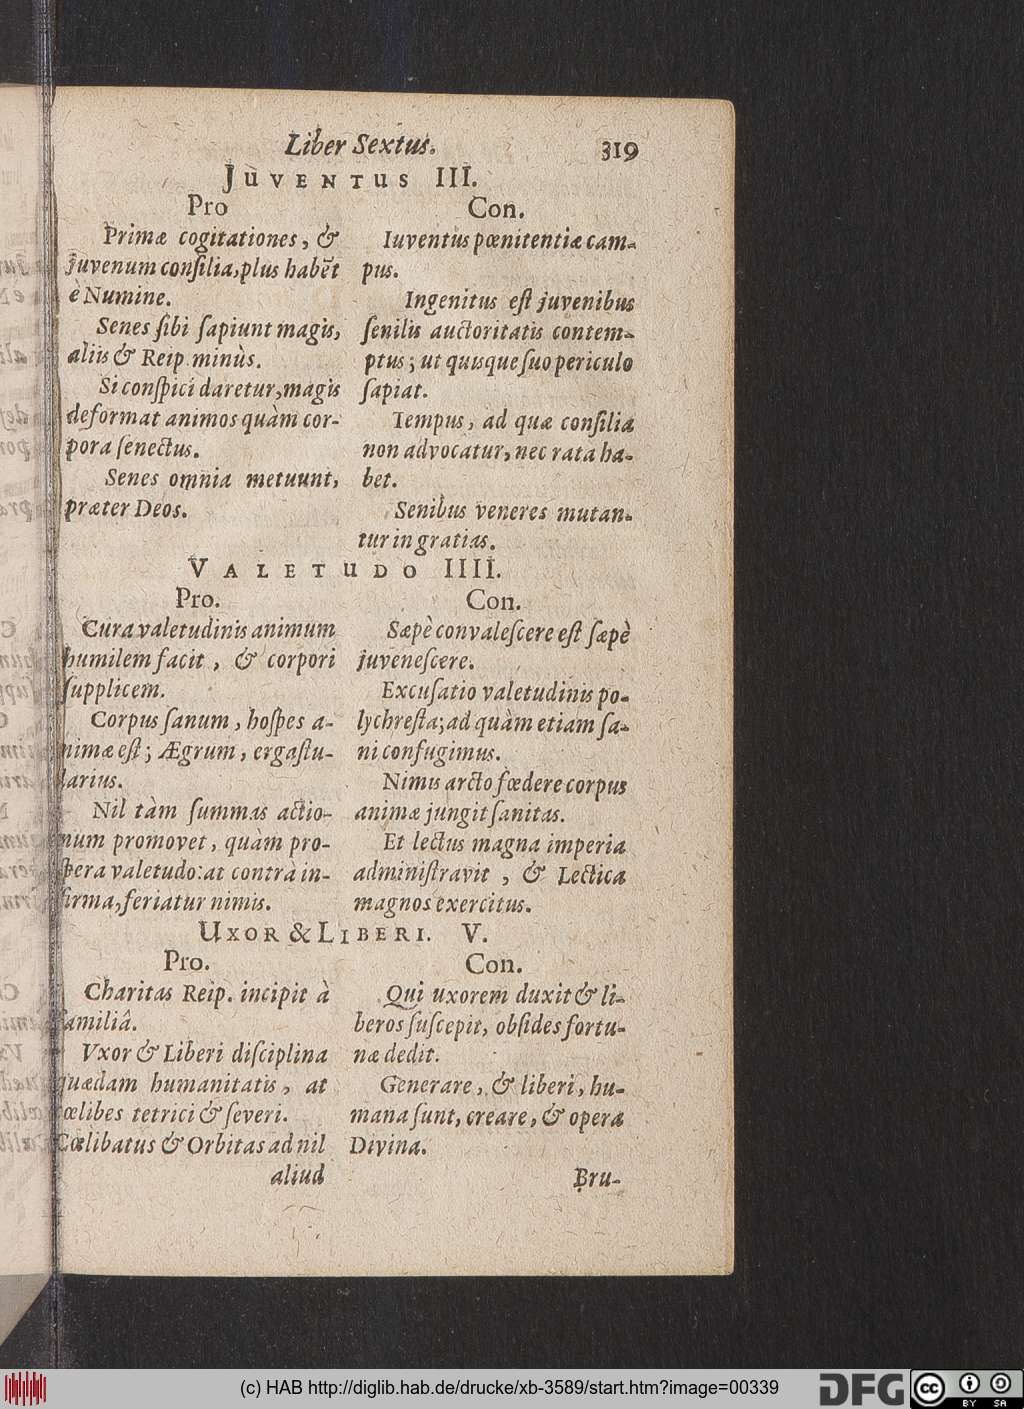 Liber Sextus. 319
JUVENTUS III.
Pro
Primæ cogitationes, &
juvenum consilia, plus habēt
è Numine.
Senes sibi sapiunt magis,
aliis & Reip. minùs.
Si conspici daretur, magis
deformat animos quàm cor-
pora senectus.
Senes omnia metuunt,
præter Deos.
Con.
Iuventus pœnitentiæ cam-
pus.
Ingenitus est juvenibus
senilis auctoritatis contem-
ptus; ut quisque suo periculo
sapiat.
Tempus, ad quæ consilia
non advocatur, nec rata ha-
bet.
Senibus veneres mutan-
tur in gratias.
VALETUDO IIII.
Pro.
Cura valetudinis animum
humilem facit, & corpori
supplicem.
Corpus sanum, hospes a-
nimæ est; Ægrum, ergastu-
larius.
Nil tàm summas actio-
num promovet, quàm pro-
spera valetudo: at contrà in-
firma, feriatur nimis.
Con.
Sæpè convalescere est sæpè
juvenescere.
Excusatio valetudinis po-
lychresta; ad quàm etiam sa-
ni confugimus.
Nimis arcto fœdere corpus
animæ jungit sanitas.
Et lectus magna imperia
administravit, & Lectica
magnos exercitus.
UXOR & LIBERI. V.
Pro.
Charitas Reip. incipit à
familiâ.
Vxor & Liberi disciplina
quædam humanitatis, at
cœlibes tetrici & severi.
Cœlibatus & Orbitas ad nil
aliud
Con.
Qui uxorem duxit & li-
beros suscepit, obsides fortu-
næ dedit.
Generare, & liberi, hu-
mana sunt, creare, & opera
Divina.
Bru-
(c) HAB http://diglib.hab.de/drucke/xb-3589/start.htm?image=00339
DFG
cc BY SA